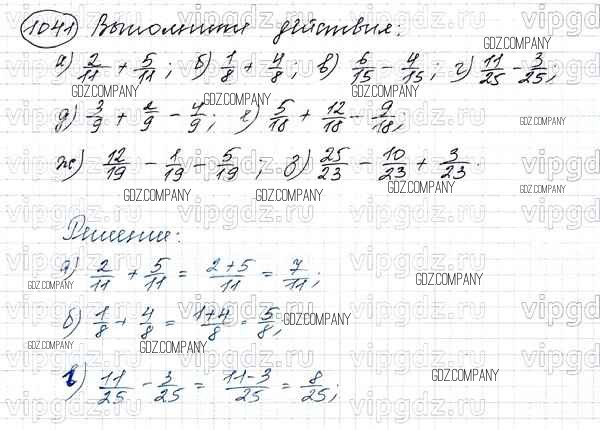 1041 Выполните действия:
а) 2/11 + 5/11; б) 1/8 + 4/8; в) 6/15 - 4/15; г) 11/25 - 3/25;
д) 3/9 + 2/9 - 4/9; е) 5/18 + 12/18 - 9/18;
ж) 12/19 - 1/19 - 5/19; з) 25/23 - 10/23 + 3/23.
Решение:
а) 2/11 + 5/11 = 2+5/11 = 7/11;
б) 1/8 + 4/8 = 1+4/8 = 5/8;
в) 11/25 - 3/25 = 11-3/25 = 8/25;
vipgdz.ru
GDZ.COMPANY